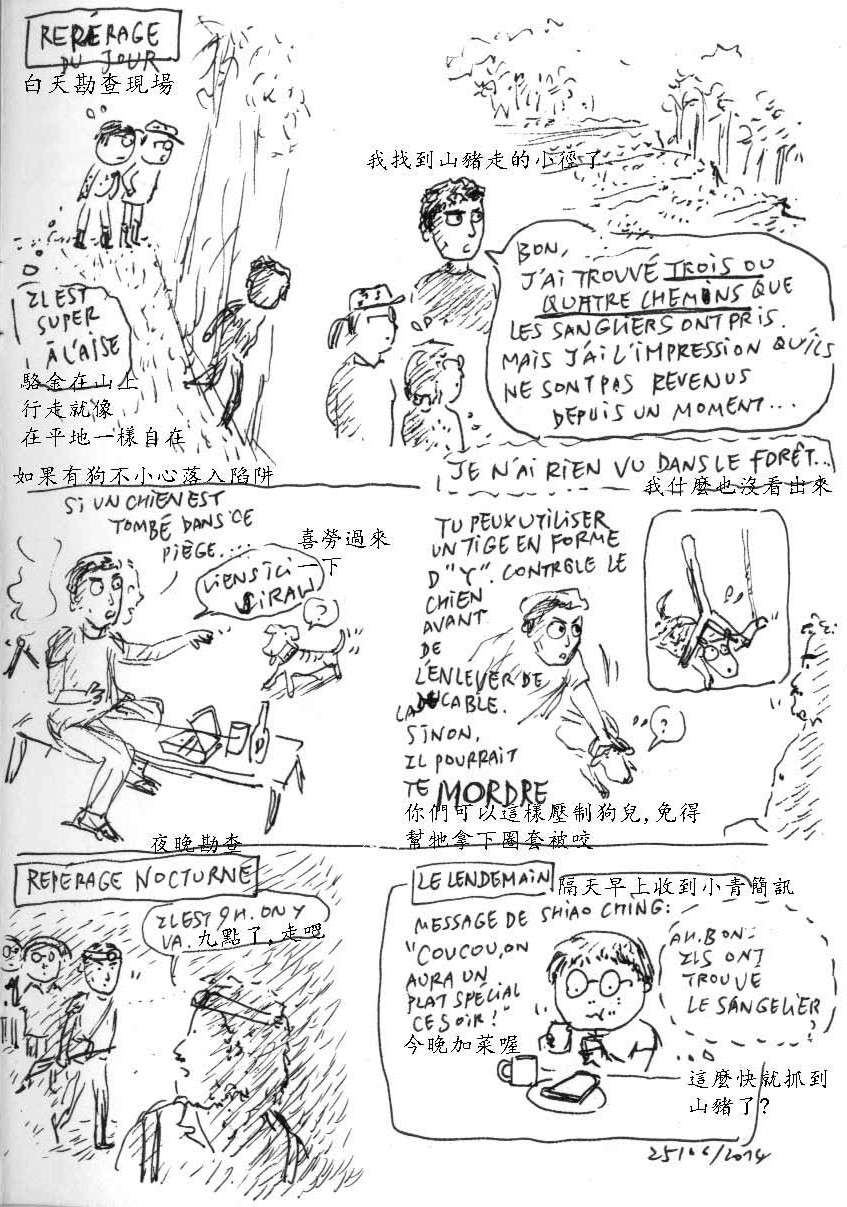 REPÉRAGE
DU JOUR
白天勘查現場
IL EST
SUPER
À L'AISE
駱金在山上
行走就像
在平地一樣自在
我找到山豬走的小徑了
BON,
J'AI TROUVÉ TROIS OU
QUATRE CHEMINS QUE
LES SANGLIERS ONT PRIS.
MAIS J'AI L'IMPRESSION QU'ILS
NE SONT PAS REVENUS
DEPUIS UN MOMENT...
JE N'AI RIEN VU DANS LE FORÊT...
我什麼也沒看出來
如果有狗不小心落入陷阱
SI UN CHIEN EST
TOMBÉ DANS CE
PIÈGE....
喜勞過來
一下
VIENS ICI
SIRAW
?
TU PEUX UTILISER
UN TIGE EN FORME
D"Y". CONTRÔLE LE
CHIEN
AVANT
DE
L'ENLEVER DE
LA CABLE.
SINON,
IL POURRAIT
TE MORDRE
?
你們可以這樣壓制狗兒,免得
幫牠拿下圈套被咬
夜晚勘查
REPÉRAGE NOCTURNE
IL EST 9H. ON Y
VA. 九點了,走吧
LE LENDEMAIN
隔天早上收到小青簡訊
MESSAGE DE SHIAO CHING:
"COUCOU, ON
AURA UN
PLAT SPÉCIAL
CE SOIR!"
今晚加菜喔
AH. BON.
ILS ONT
TROUVÉ
LE SANGELIER
?
這麼快就抓到
山豬了?
25/06/2014